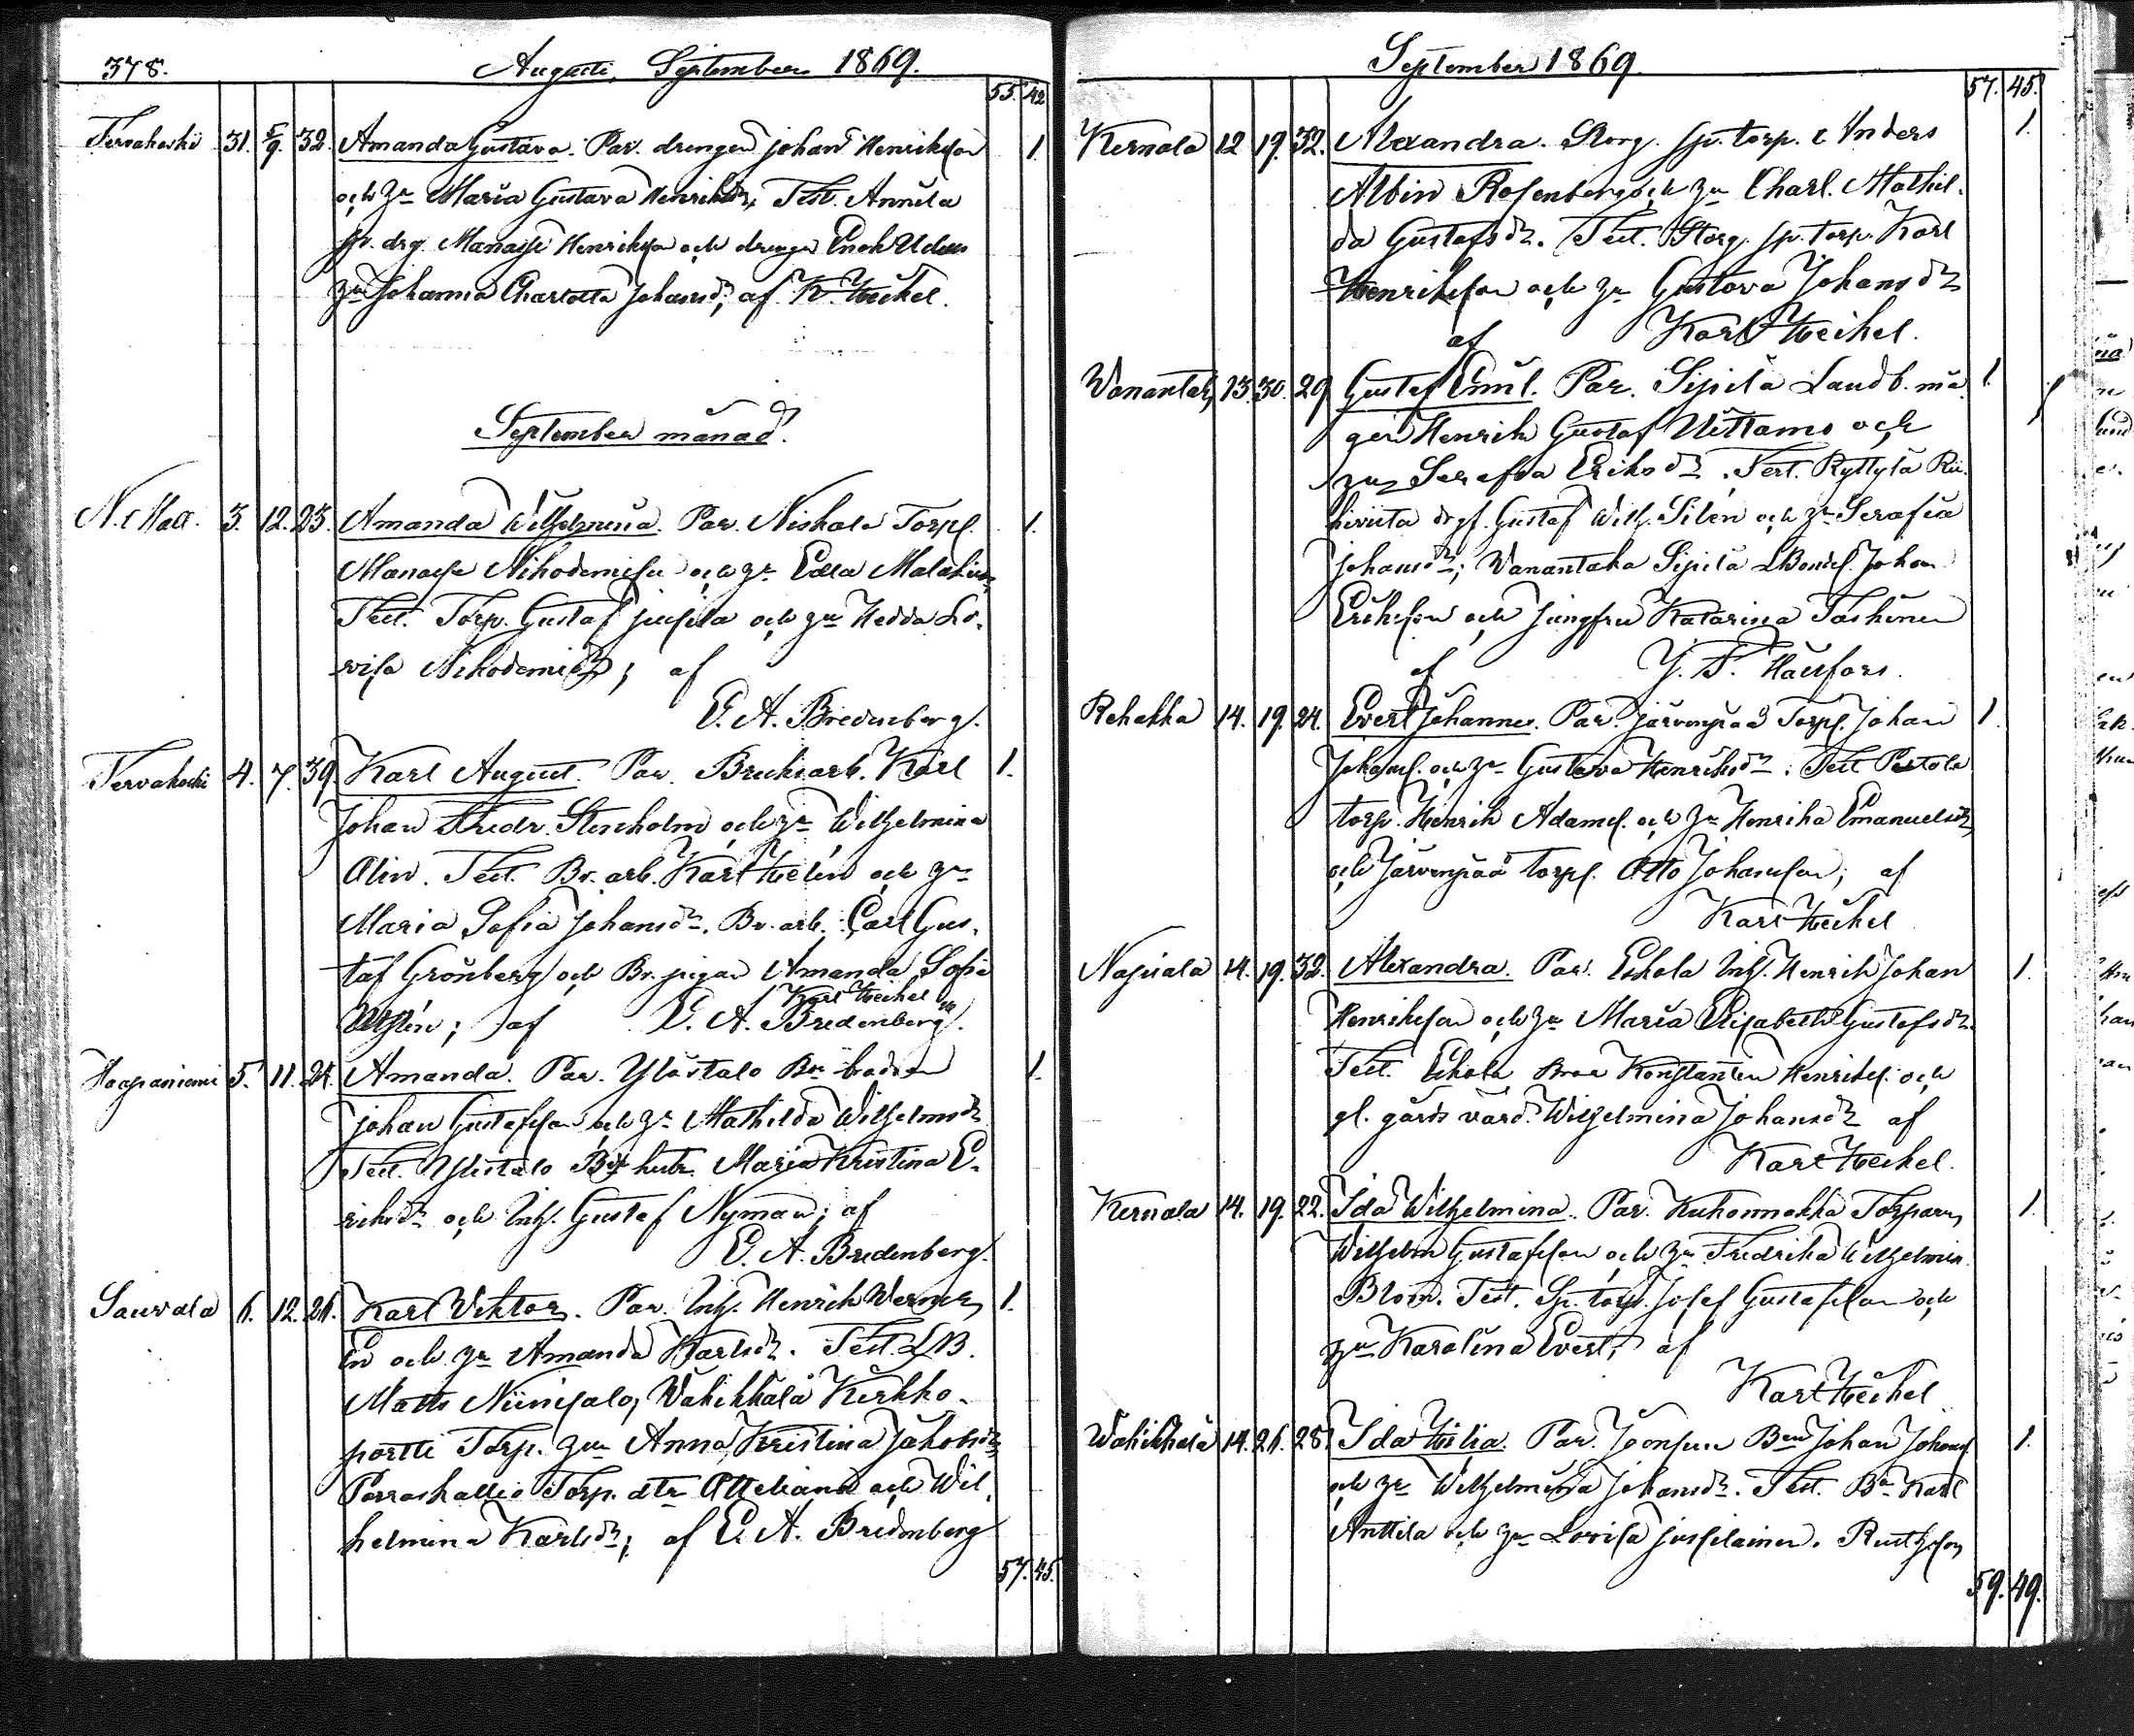 378. Augusti, September 1869.
55. 42
Tervakoski 31. 5/9. 32. Amanda Gustava. Par. drengen Johan Henriksson 1.
och hu Maria Gustava Henriksdr. Test. Annila
sp. drg. Manasse Henriksson och drengen Enok Udens
hu Johanna Charlotta Johansdr; af K. Heikel.
September månad.
N. Mall. 3. 12. 23. Amanda Wilhelmina. Par. Niskala Torp. 1.
Manasse Nikodemiss. och hu Edla Malakiasdr
Test. Torp. Gustaf Jussila och hu Hedda Lo-
visa Nikodemidr; af
E. A. Bredenberg.
Tervakoski 4. 7. 39. Karl August. Par. Bruksarb. Karl 1.
Johan Fredr. Stenholm och hu Wilhelmina
Alin. Test. Br. arb. Karl Helin och hu
Maria Sofia Johansdr. Br. arb. Carl Gus-
taf Grönberg och Br. pigan Amanda Sofia
af Karl Heikel
E. A. Bredenberg.
Haapaniemi 5. 11. 24. Amanda. Par. Ylöstalo Bn broder 1.
Johan Gustafsson och hu Mathilda Wilhelmsdr
Test. Ylöstalo Maria Kristina E-
riksdr och Inh. Gustaf Nyman; af
E. A. Bredenberg.
Sauvala 6. 12. 26. Karl Viktor. Par. Inh. Henrik Werner 1.
och hu Amanda Karlsdr. Test. LB.
Matts Niinisalo, Vahikkala Kirkko-
portti Torp. hu Anna Kristina Jakobsdr
Porraskallio Torp. dtr Ottiliana och Wil-
helmina Karlsdr; af E. A. Bredenberg
57. 45.
September 1869.
57. 45.
Kernala 12 19. 32. Alexandra. Storg. sp. torp. Anders 1.
Albin Rosenberg och hu Charl. Mathil-
da Gustafsdr. Test. Storg. sp. torp. Karl
Henriksson och hu Gustava Johansdr
af Karl Heikel.
Vanantaka 13. 30. 29 Gustaf Emil. Par. Sipilä Landb. må- 1.
gen Henrik Gustaf Uittamo och
hu Serafia Eriksdr. Test. Ryttylä Rii-
hiviita drgf. Gustaf Wilh. Silén och hu Serafia
Johansdr; Vanantaka Sipilä LBondes. Johan
Eriksson och jungfru Katarina Taskinen
af J. F. Hällfors.
Rehakka 14. 19. 24. Evert Johannes. Par. Järvenpää Torp. Johan 1.
Johans. och hu Gustava Henriksdr; Test
torp. Henrik Adams. och hu Henrika Emanuelsdr
och Järvenpää torp. Otto Johansson; af
Karl Heikel
Napiala 14. 19. 32. Alexandra. Par. Eskola Inh. Henrik Johan 1.
Henriksson och hu Maria Elisabeth Gustafsdr.
Test. Eskola Konstantin Henriks. och
gl. gårds värd. Wilhelmina Johansdr af
Karl Heikel.
Kernala 14. 19. 22. Ida Wilhelmina. Par. Kuhonnokka Torparn 1.
Wilhelm Gustafsson och hu Fredrika Wilhelmin
Blom. Test. Sp. torp. Josef Gustafsson och
hu Karolina Evert; af
Karl Heikel
Vahikkala 14. 26. 28. Ida Hilja. Par. Joonsuu Bn Johan Johans. 1.
och hu Wilhelmina Johansdr. Test. Bn Karl
Anttila och hu Lovisa Jussilainen.
59. 49.